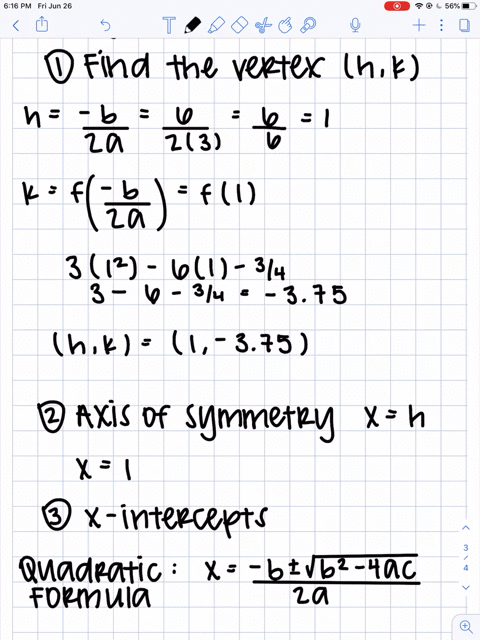 6:16 PM Fri Jun 26
56%
① Find the vertex (h,k)
h = -b/2a = 6/2(3) = 6/6 = 1
k = f(-b/2a) = f(1)
3(1²) - 6(1) - 3/4
3 - 6 - 3/4 = -3.75
(h,k) = (1, -3.75)
② Axis of symmetry x = h
x = 1
③ x-intercepts
Quadratic: x = -b±√b²-4ac/2a
Formula
3
/
4